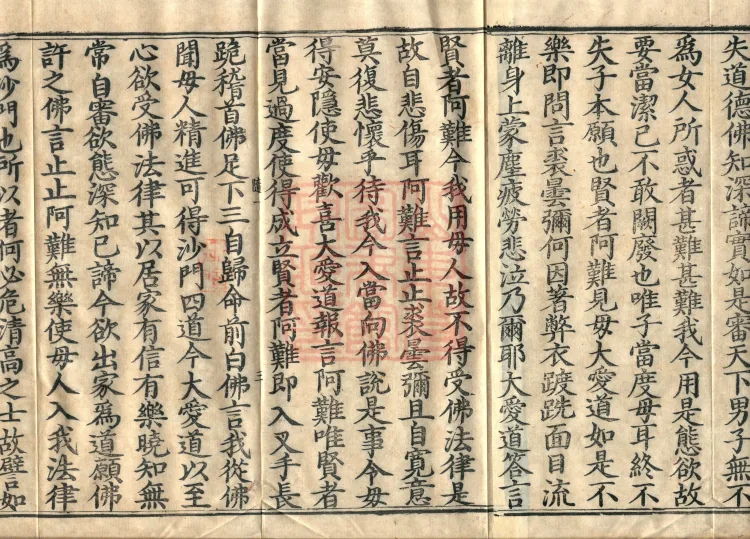 失道德佛知深諦實如是審天下男子無不
爲女人所惑者甚難甚難我今用是態欲故
要當潔已不敢闕廢也唯子當度母耳終不
失子本願也賢者阿難見母大愛道如是不
樂即問言裘曇彌何因著弊衣踱跣面目流
離身上蒙塵疲勞悲泣乃爾耶大愛道答言
賢者阿難今我用母人故不得受佛法律是
故自悲傷耳阿難言止止裘曇彌且自寬意
莫復悲懷乎待我今入當向佛說是事令母
得安隱使母歡喜大愛道報言阿難唯賢者
當見過度使得成立賢者阿難即入叉手長
三
跪稽首佛足下三自歸命前白佛言我從佛
聞母人精進可得沙門四道今大愛道以至
心欲受佛法律其以居家有信有樂曉知無
常自審欲態深知已諦今欲出家爲道願佛
許之佛言止止阿難無樂使母人入我法律
爲沙門也所以者何必危清高之士故譬如